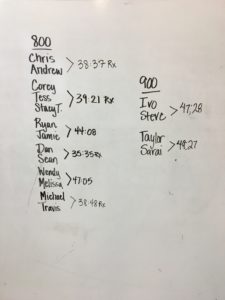 800
Chris
Andrew > 38:37 Rx
Corey
Tess > 39:21 Rx
Stacy T.
Ryan
Jamie > 44:08
Dan
Sean > 35:35 Rx
Wendy
Melissa > 47:05
Michael
Travis > 38:48 Rx
900
Ivo
Steve > 47:28
Taylor
Sarai > 48:27